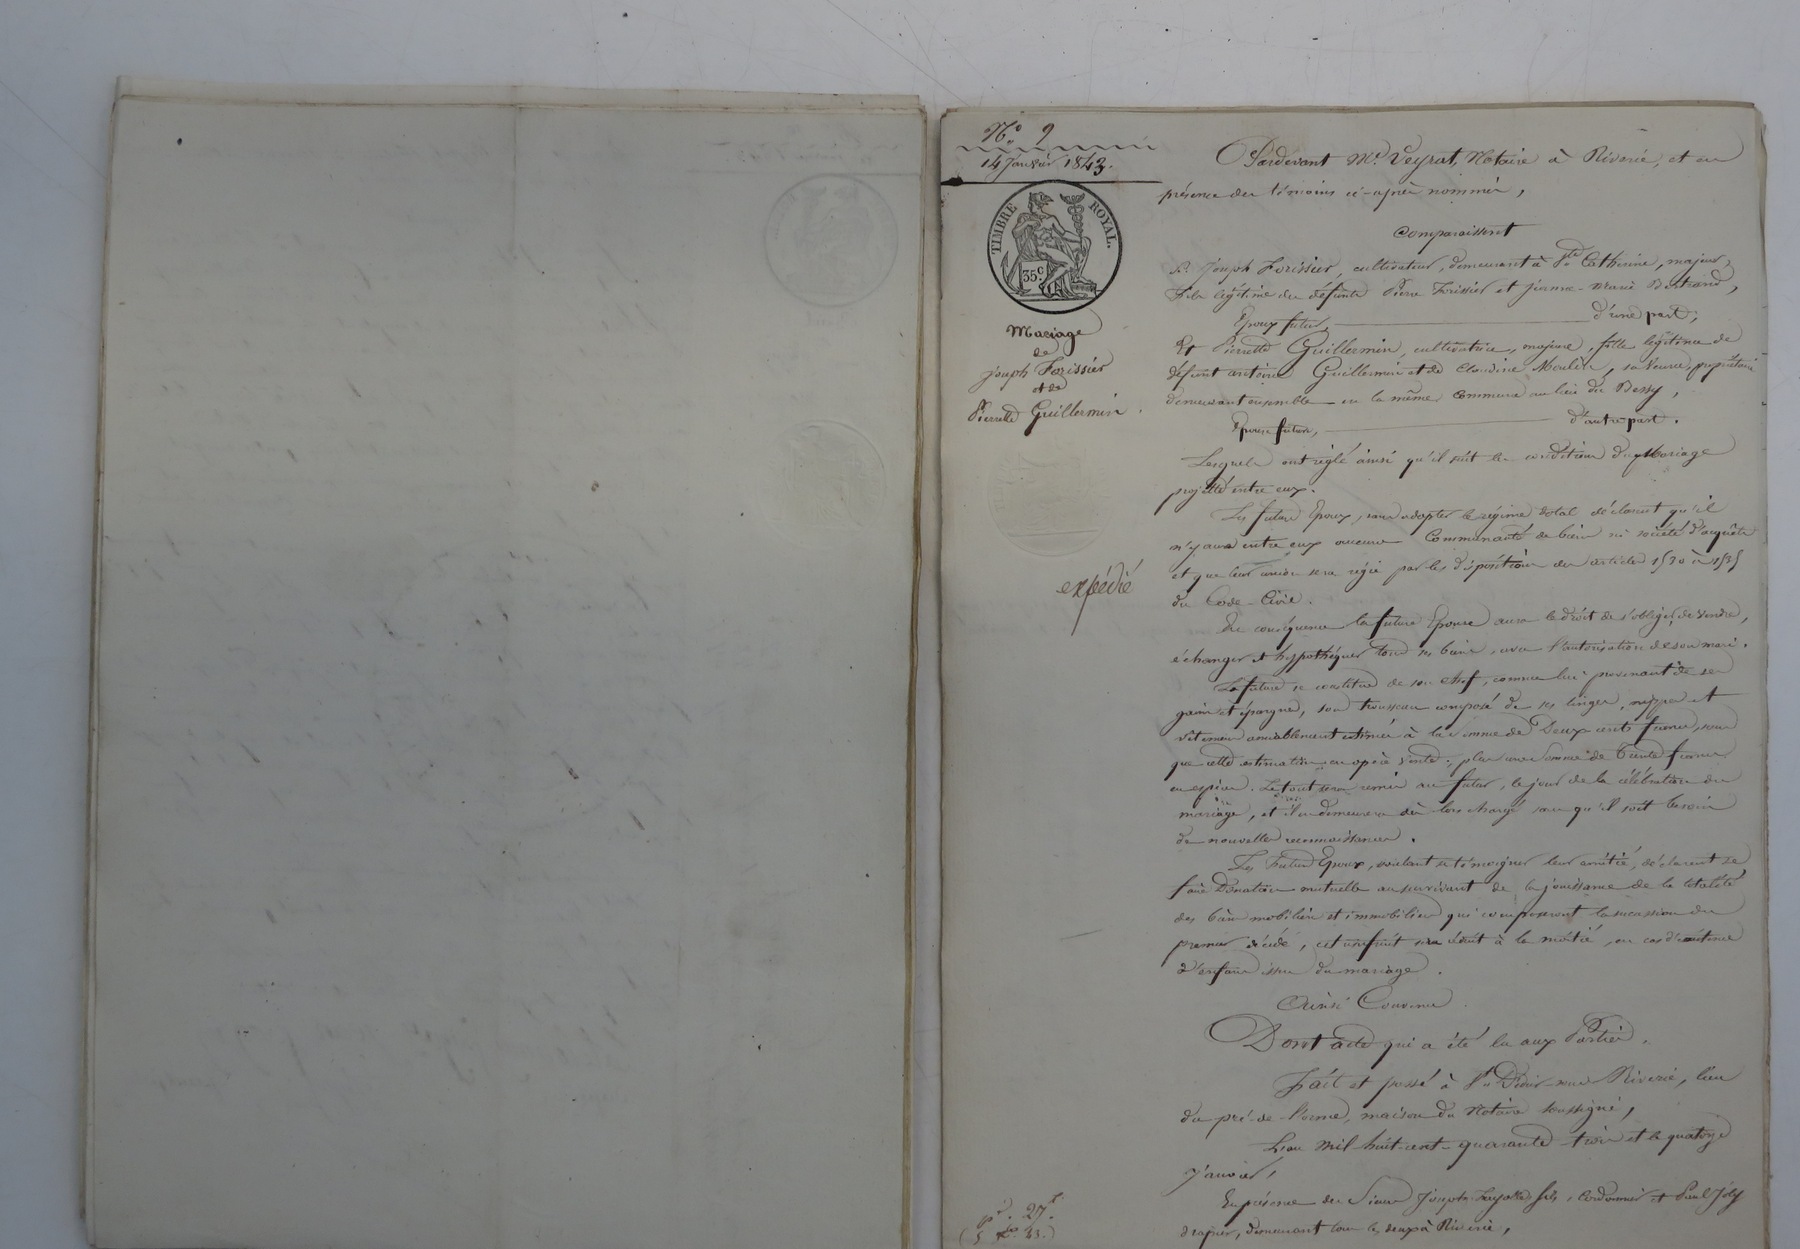 N.° 9
14 Janvier 1843.
TIMBRE ROYAL.
35 c
Mariage
de
Joseph Forissier
et de
Pierrette Guillermin.
expédié
Pardevant M.e Veyrat, Notaire à Riverie, et en
présence des témoins ci-après nommés,
Comparaissent
S.r Joseph Forissier, cultivateur, demeurant à S.te Catherine, majeur,
fils légitime des défunts Pierre Forissier et Jeanne-Marie Bertrand,
Epoux futur, d'une part;
Et Pierrette Guillermin, cultivatrice, majeure, fille légitime de
défunt antoine Guillermin et de Claudine Moulin, sa Veuve, propriétaire
demeurant ensemble en la même Commune au lieu du Bessy,
Epouse future, d'autre part.
Lesquels ont réglé ainsi qu'il suit les conditions du Mariage
projetté entre eux.
Les futurs Epoux, sans adopter le régime dotal déclarent qu'il
n'y aura entre eux aucune Communauté de biens ni société d'acquêts
et que leur union sera régie par les dispositions des articles 1530 à 1535
du Code Civil.
En conséquence la future Epouse aura le droit de s'obliger, de vendre,
échanger et hypothéquer tous ses biens, avec l'autorisation de son mari.
La future se constitue de son chef, comme lui provenant de ses
gains et épargnes, son trousseau composé de ses linges, nippes et
vêtemens amiablement estimés à la somme de Deux cents francs, sans
que cette estimation en opère vente; plus une somme de trente francs
en espèces. Le tout sera remis au futur, le jour de la célébration du
mariage, et il en demeurera dès lors chargé sans qu'il soit besoin
de nouvelle reconnaissance.
Les futurs Epoux, voulant se témoigner leur amitié, déclarent se
faire Donation mutuelle au survivant de la jouissance de la totalité
des biens mobiliers et immobiliers qui composeront la succession du
premier décédé, cet usufruit sera réduit à la moitié, en cas d'existence
d'enfans issus du mariage.
Ainsi Convenu.
Dont acte qui a été lu aux Parties.
Fait et passé à S.t Didier sous Riverie, lieu
du pré-de-l'orme, maison du Notaire soussigné,
L'an mil-huit-cent-quarante-trois et le quatorze
Janvier,
En présence des Sieurs Joseph fils, Cordonnier et Paul Joly
drapier, demeurant tous les deux à Riverie,